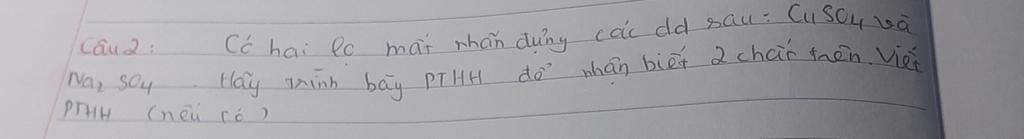 Câu 2: Có hai lọ mất nhãn đựng các dd sau: CuSO4 và
Na2 SO4. Hãy trình bày PTHH để nhận biết 2 chất trên. Viết
PTHH (nếu có)